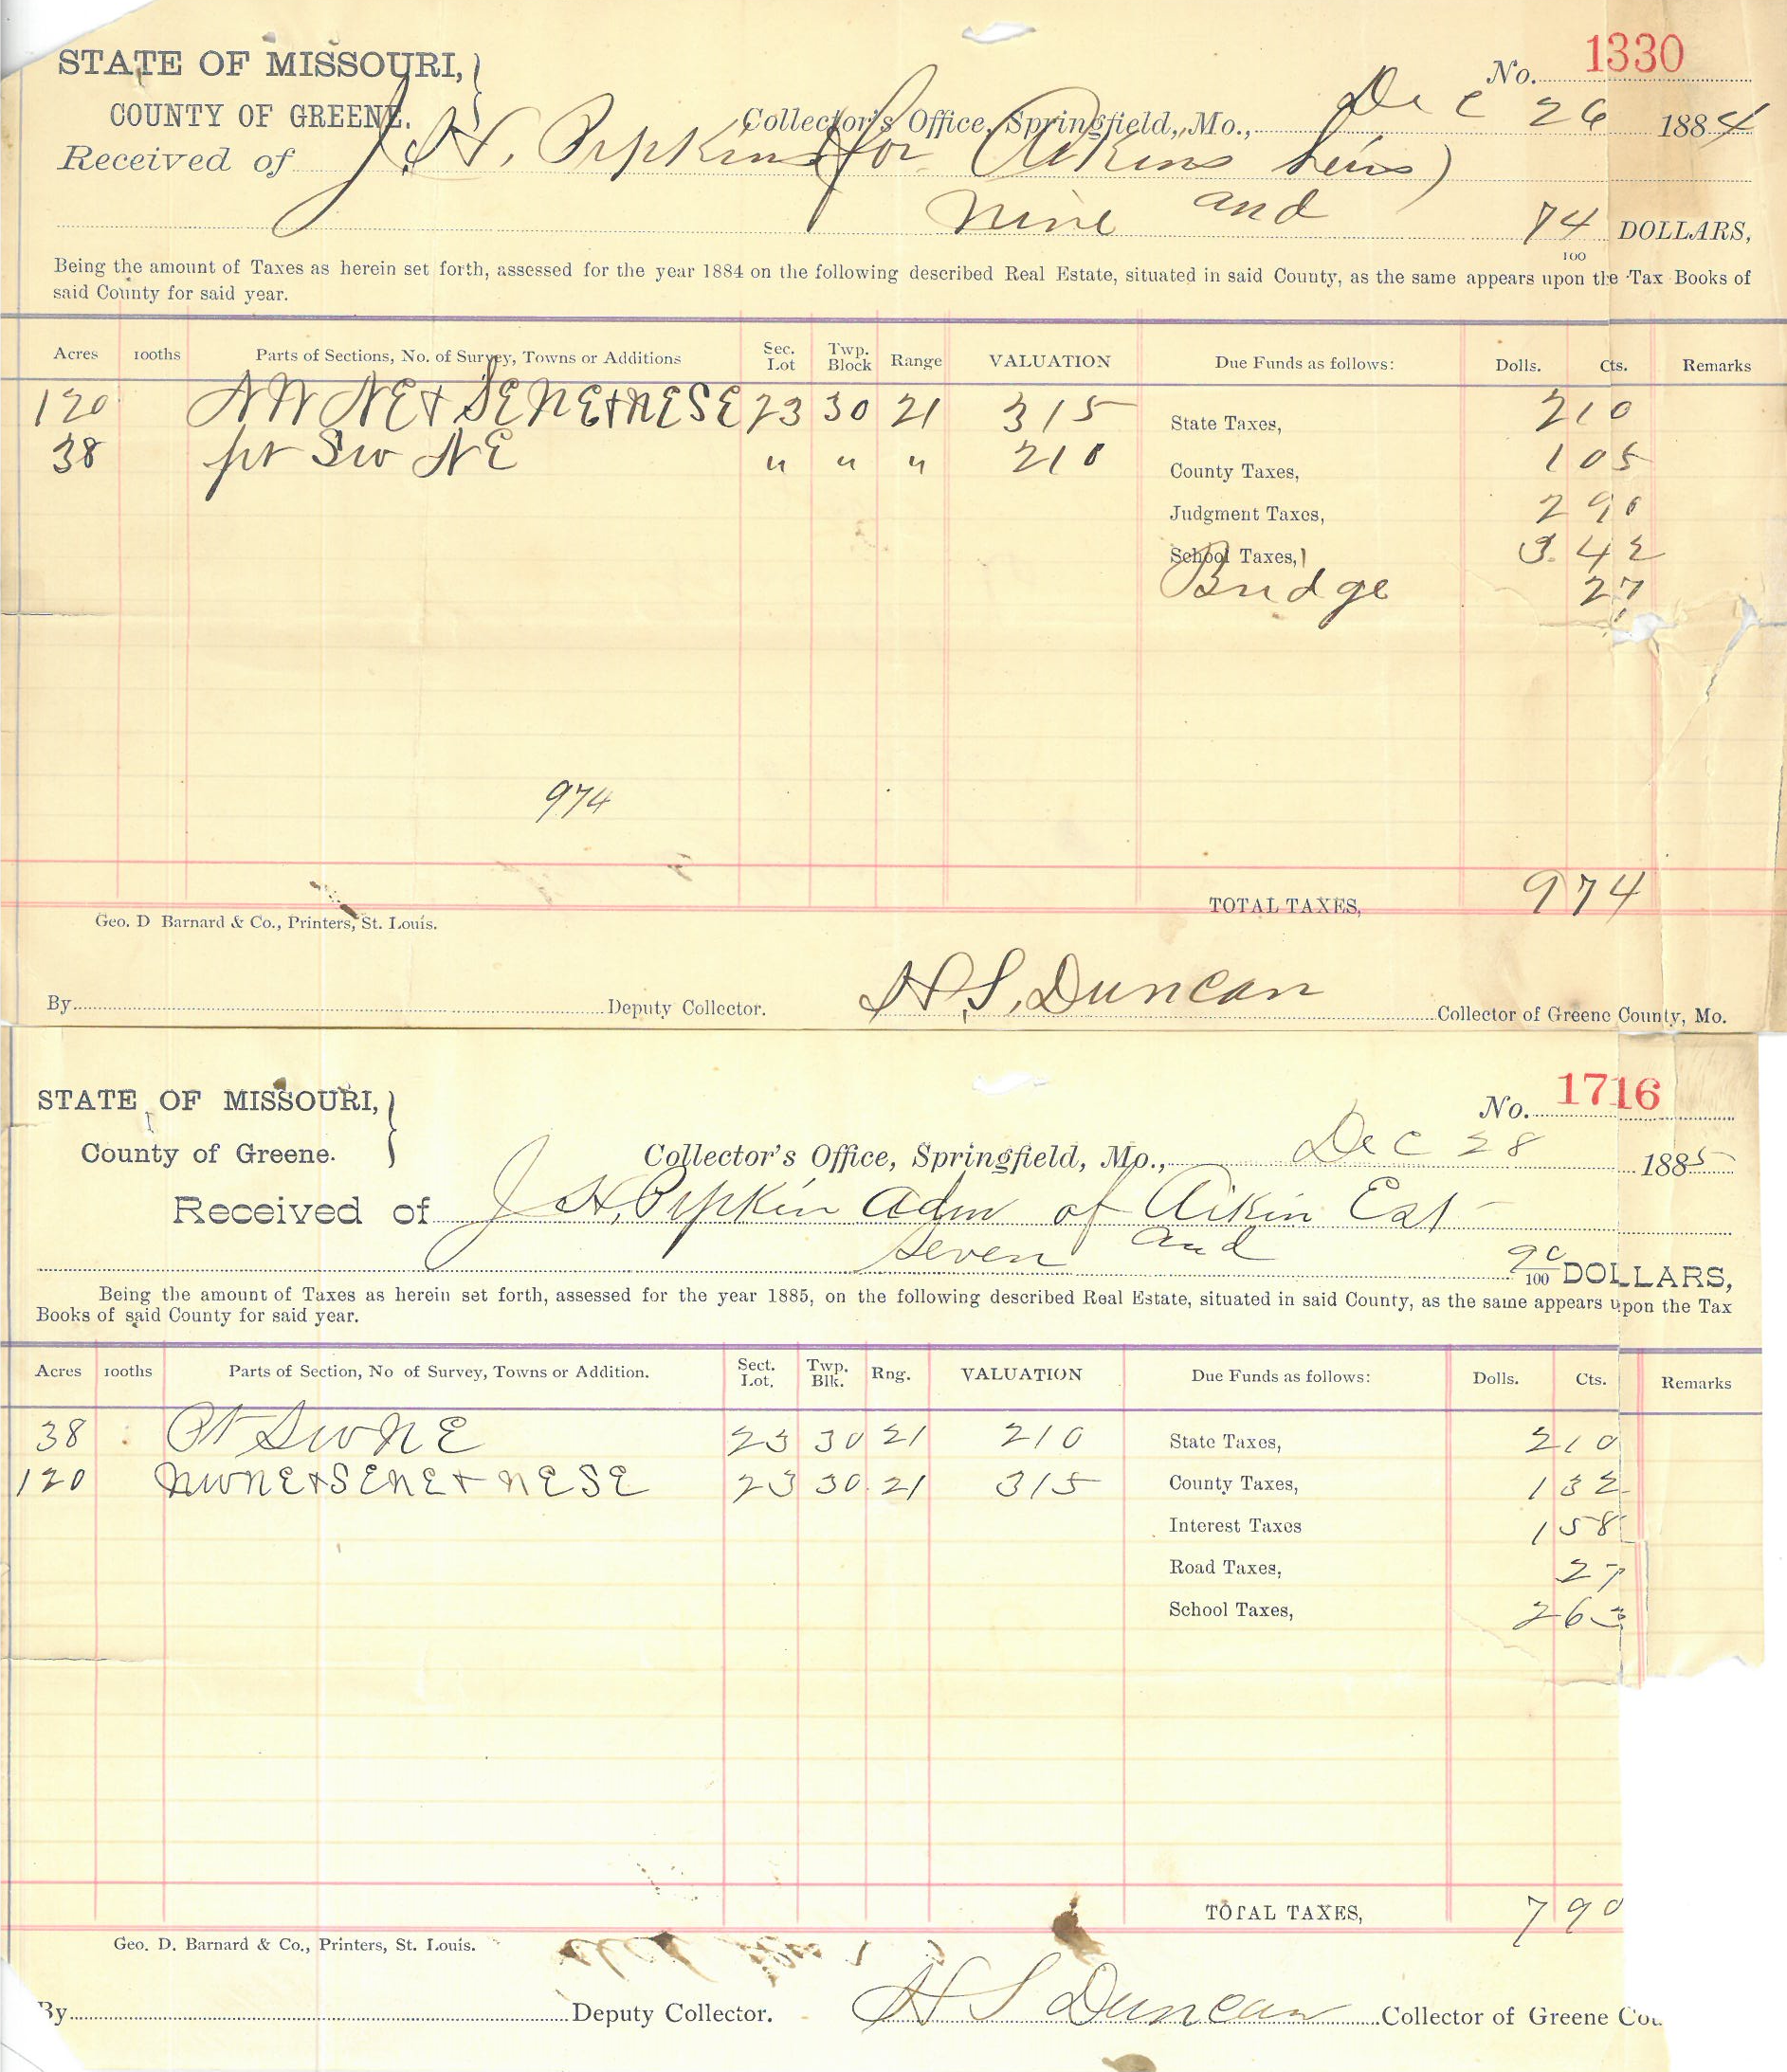 STATE OF MISSOURI, No. 1330
COUNTY OF GREENE. Collector's Office, Springfield, Mo., Dec 26 1884
Received of J. H. Pipkin (for Aikins heirs)
nine and 74/100 DOLLARS,
Being the amount of Taxes as herein set forth, assessed for the year 1884 on the following described Real Estate, situated in said County, as the same appears upon the Tax Books of
said County for said year.
Acres 100ths Parts of Sections, No. of Survey, Towns or Additions Sec. Lot Twp. Block Range VALUATION Due Funds as follows: Dolls. Cts. Remarks
120 NW NE + SENE + NESE 23 30 21 315 State Taxes, 2 10
38 pt SW NE " " " 210 County Taxes, 1 05
Judgment Taxes, 2 90
School Taxes, 3 42
Bridge 27
974
TOTAL TAXES, 9 74
Geo. D Barnard & Co., Printers, St. Louis.
By Deputy Collector. H. S. Duncan Collector of Greene County, Mo.
STATE OF MISSOURI, No. 1716
County of Greene. Collector's Office, Springfield, Mo., Dec 28 1885
Received of J. H. Pipkin Adm of Aikin Est
seven and 90/100 DOLLARS,
Being the amount of Taxes as herein set forth, assessed for the year 1885, on the following described Real Estate, situated in said County, as the same appears upon the Tax
Books of said County for said year.
Acres 100ths Parts of Section, No of Survey, Towns or Addition. Sect. Lot. Twp. Blk. Rng. VALUATION Due Funds as follows: Dolls. Cts. Remarks
38 Pt SWNE 23 30 21 210 State Taxes, 2 10
120 NWNE + SENE + NESE 23 30 21 315 County Taxes, 1 32
Interest Taxes 1 58
Road Taxes, 27
School Taxes, 2 63
TOTAL TAXES, 7 90
Geo. D. Barnard & Co., Printers, St. Louis.
By Deputy Collector. H S Duncan Collector of Greene